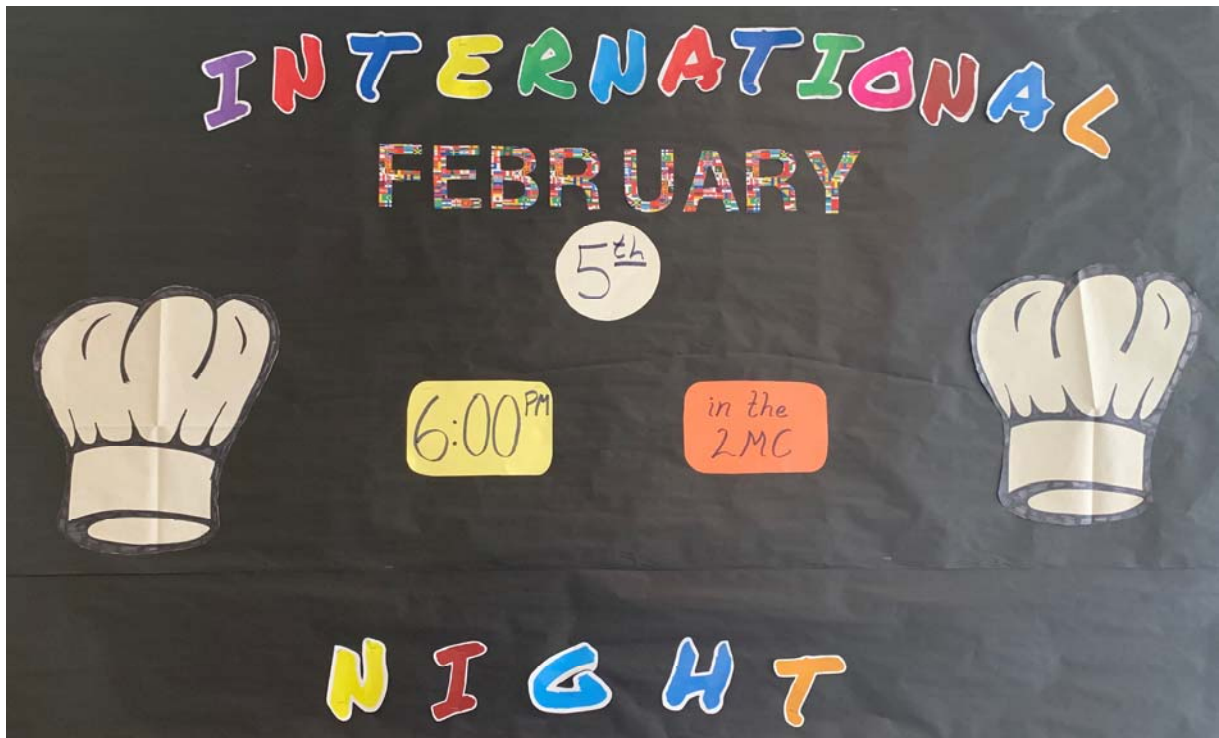 INTERNATIONAL
FEBRUARY
5th
6:00 PM
in the
LMC
NIGHT